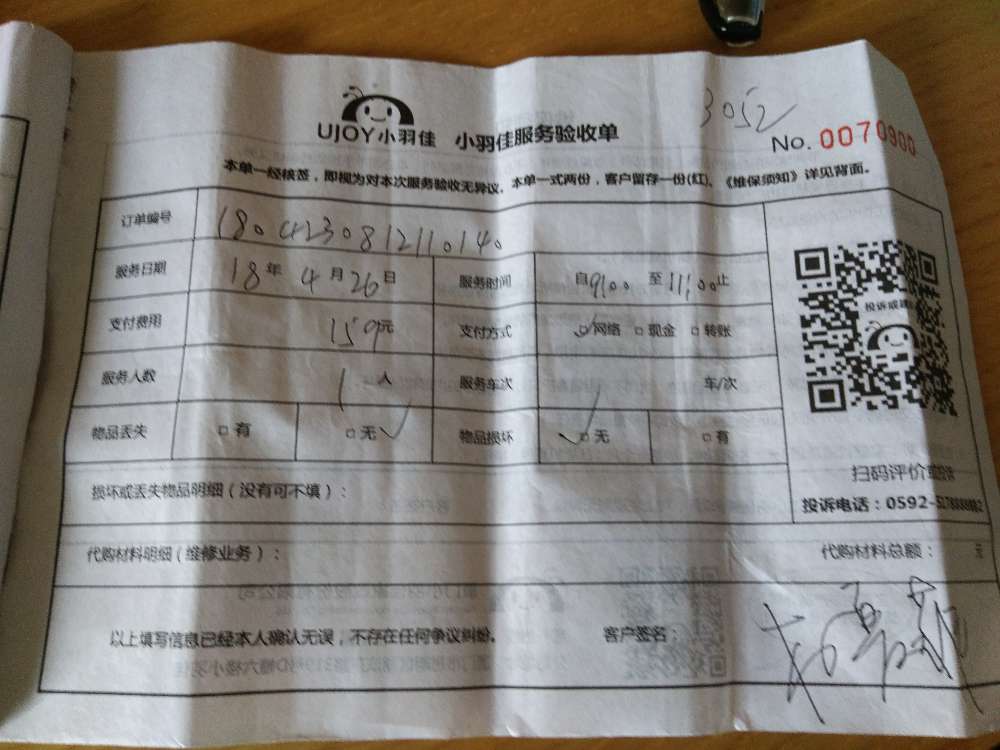 3052
UJOY小羽佳 小羽佳服务验收单
No. 0070900
本单一经核签，即视为对本次服务验收无异议。本单一式两份，客户留存一份(红)。《维保须知》详见背面。
订单编号 1804230812110140
服务日期 18年4月26日 服务时间 自9:00至11:00止
支付费用 159元 支付方式 ☑网络 □现金 □转账
服务人数 1人 服务车次 1 车/次
物品丢失 □有 □无✓ 物品损坏 ✓□无 □有
损坏或丢失物品明细（没有可不填）：
扫码评价
投诉电话：0592-
代购材料明细（维修业务）： 代购材料总额： 元
以上填写信息已经本人确认无误，不存在任何争议纠纷。 客户签名：